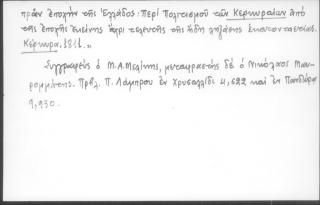 πρώην ἐποχήν τῆς Ἑλλάδος: Περί Πολιτισμοῦ τῶν Κερκυραίων ἀπό
τῆς ἐποχῆς ἐκείνης ἄχρι τελευτῆς τῆς ἤδη ληξάσης ἑκατονταετίας.
Κέρκυρα. 1811."
Συγγραφεύς ὁ Μ. Α. Μελίτης, μεταφραστής δέ ὁ Νικόλαος Μαυ-
ρομμάτης. Πρβλ. Π. Λάμπρου ἐν Χρυσαλλίδι 4, 622 καί ἐν Πανδώρᾳ
9, 230.